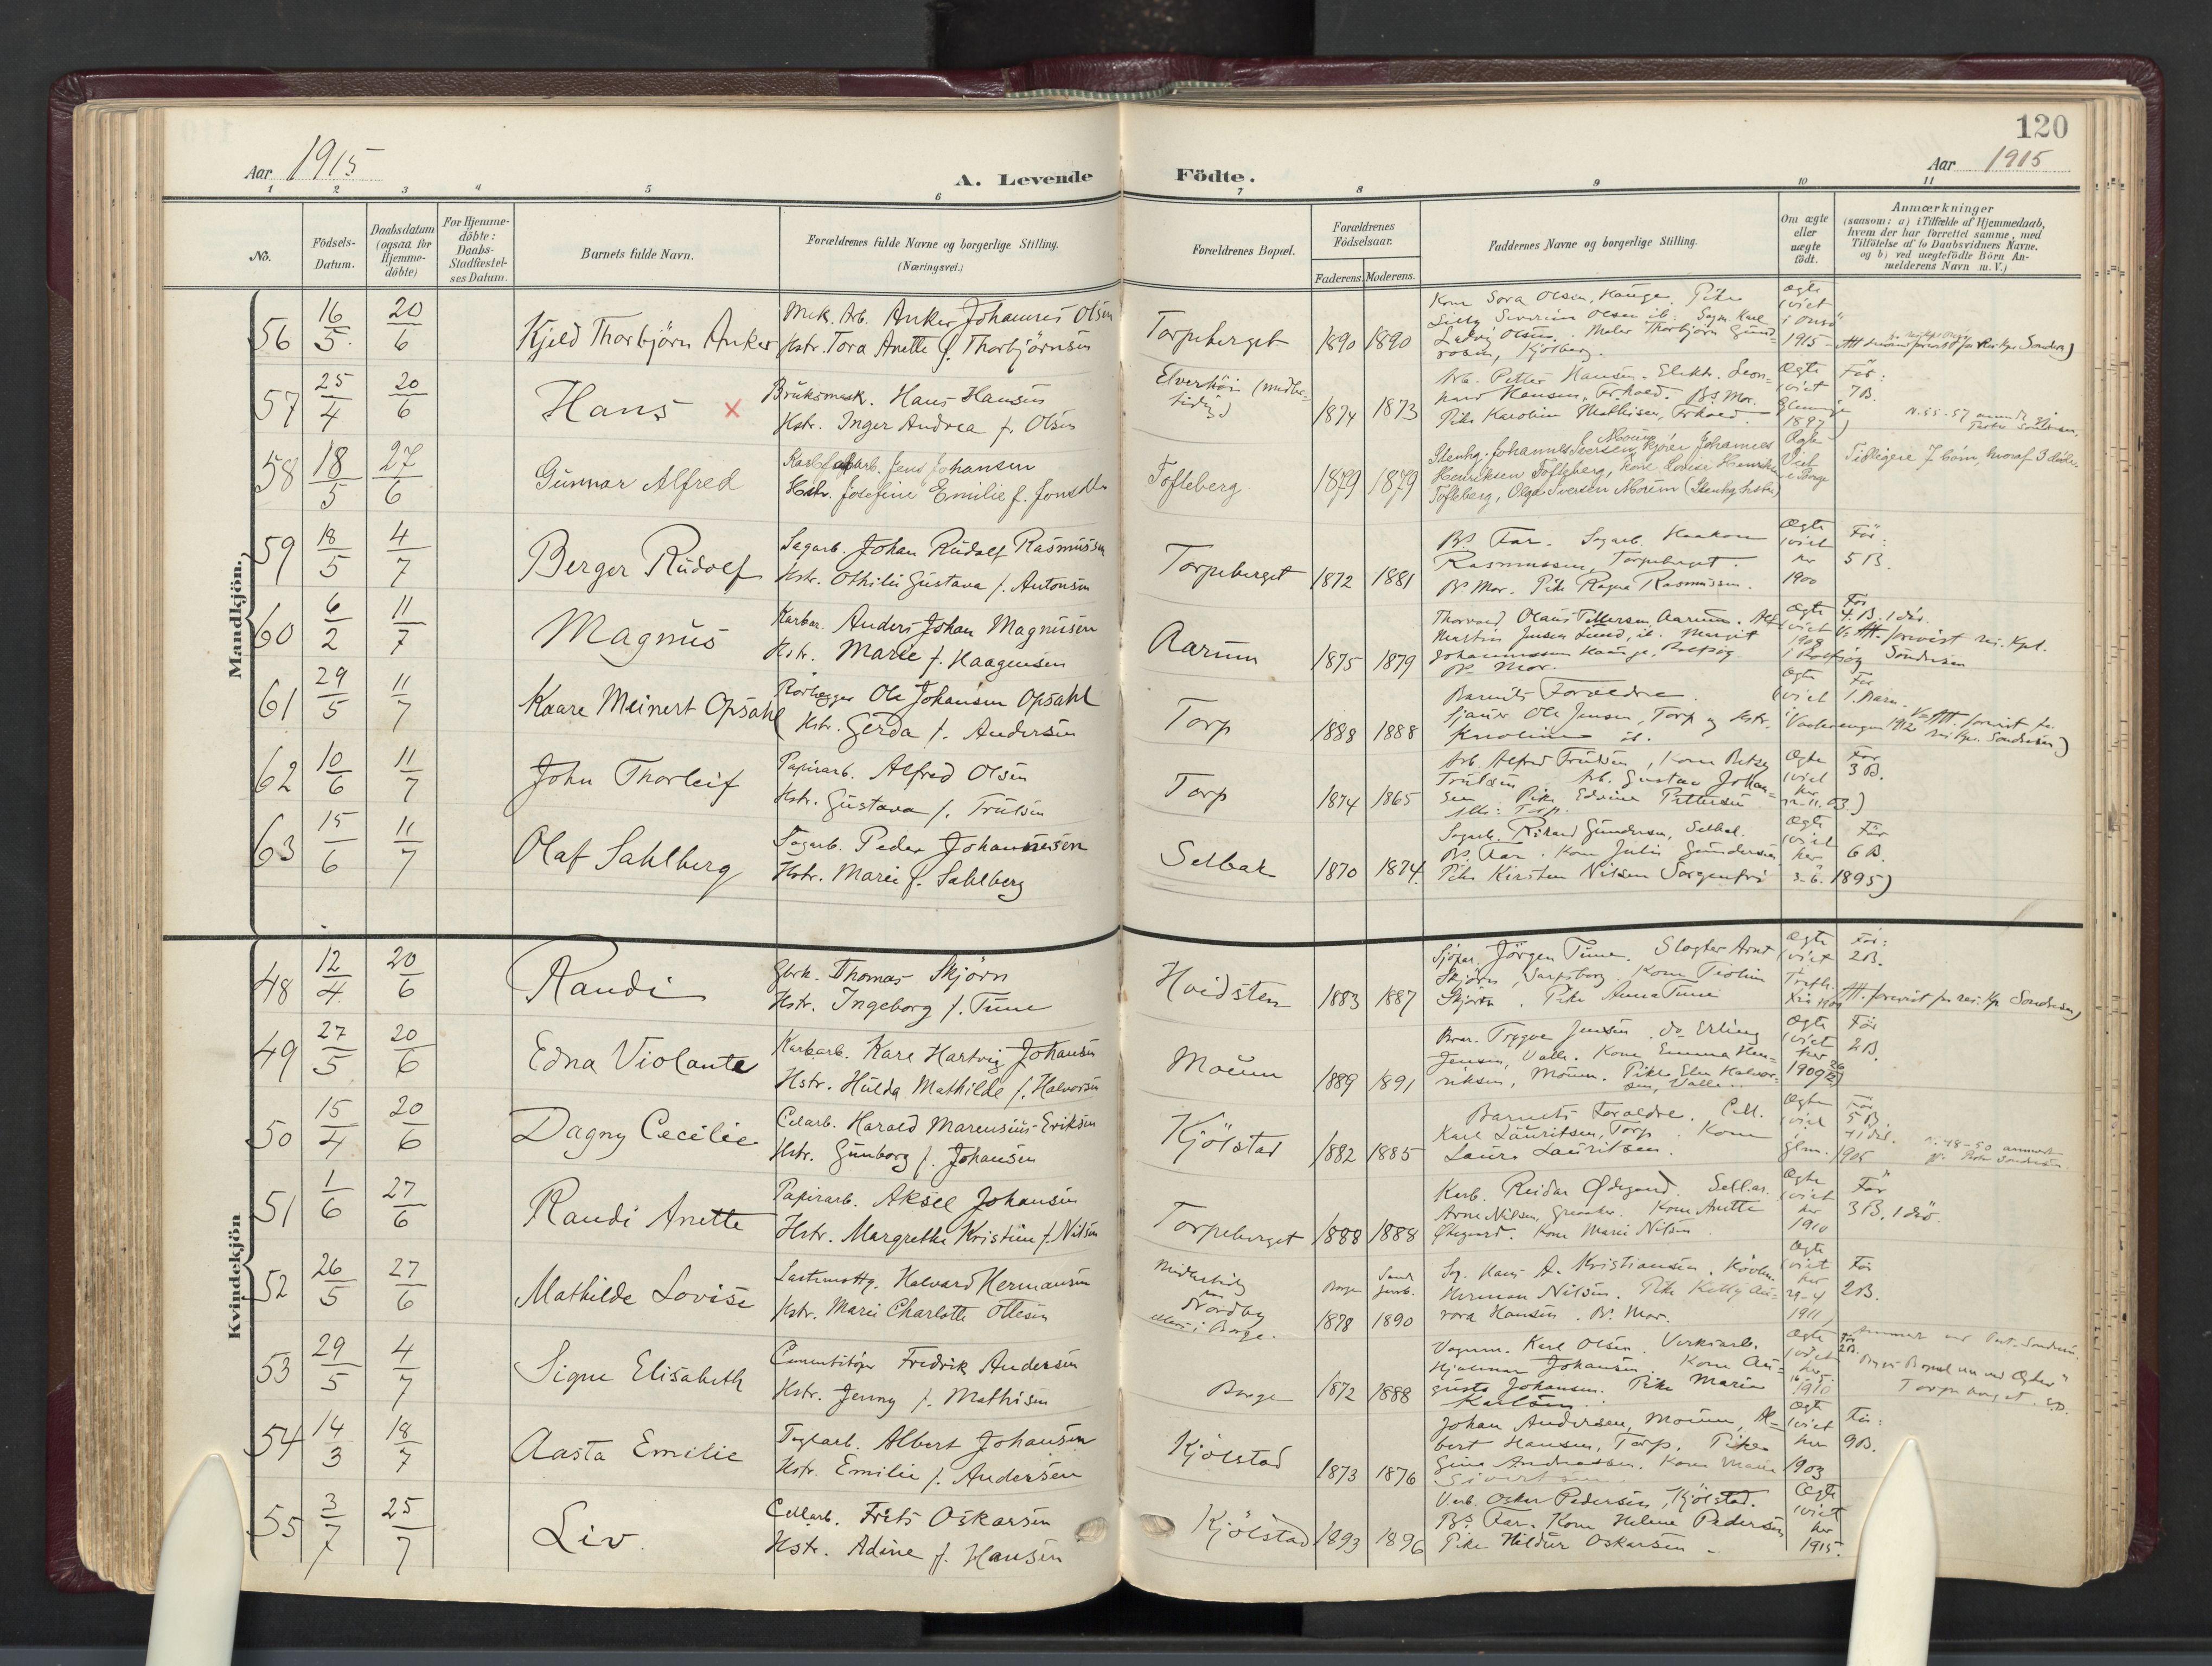 120
Aar 1915
A. Levende Födte.
Aar 1915
1 2 3 4 5 6 7 8 9 10 11
No.
Födsels-
Datum.
Daabsdatum
(ogsaa for
Hjemme-
döbte)
For Hjemme-
döbte:
Daabs-
Stadfæstel-
ses Datum.
Barnets fulde Navn.
Forældrenes fulde Navne og borgerlige Stilling.
(Næringsvei.)
Forældrenes Bopæl.
Forældrenes
Födselsaar.
Faderens. Moderens.
Faddernes Navne og borgerlige Stilling.
Om ægte
eller
uægte
födt.
Anmærkninger
(saasom: a) i Tilfælde af Hjemmedaab,
hvem der har forrettet samme, med
Tilföielse af to Daabsvidners Navne.
og b) ved uægtefödte Börn An-
melderens Navn m. V.)
Mandkjön.
56 16/5 20/6 Kjeld Thorbjörn Anker
Mek. Arb. Anker Johannes Olsen
Hstr. Tora Anette f. Thorbjörnsen
Torpeberget 1890 1890
Kone Sora Olsen, Hauge. Pike
Ludvig Olsen. Maler Thorbjörn Gund-
Ægte
(viet
i Onsö
1915
57 25/4 20/6 Hans x
Bruksmask. Hans Hansen
Hstr. Inger Andrea f. Olsen
Elverhöi (midler-
tidig)
1874 1873
Arb. Petter Hansen. Elektr. Leon-
hard Hansen, Frhald. Bs. Mor.
Pike Karoline Mathisen, Frhald
Ægte
(viet
Glemmge
1897)
För:
7 B.
58 18/5 27/6 Gunnar Alfred
Jens Johansen
Hstr. Josefine Emilie f. Jonsdtr
Tofteberg 1879 1879
Henriksen Tofteberg, Kone Lovise Henriksen
Tofteberg, Olga Iversen Moum
Ægte
Viet
i Borge
Tidligere 7 börn, hvoraf 3 döde.
59 18/5 4/7 Berger Rudolf
Sagarb. Johan Rudolf Rasmussen
Hstr. Othilie Gustava f. Antonsen
Torpeberget 1872 1881
Bs. Far. Sagarb. Haakon
Rasmussen, Torpeberget.
Bs. Mor. Pike Ragna Rasmussen.
Ægte
(viet
her
1900
För:
5 B.
60 6/2 11/7 Magnus
Karbar. Anders Johan Magnusen
Hstr. Marie f. Haagensen
Aarum 1875 1879
Thorvald Olaus Pettersen, Aarum. Alf
Martin Jensen Lund, ib. Margit
Johannessen Hauge, Rolfsöy.
Bs. Mor.
Ægte
(viet
1908
i Rolfsöy
For
4 B. 1 död.
Att. forevist res. Kpl.
Sondresen
61 29/5 11/7 Kaare Meinert Opsahl
Rörlægger Ole Johansen Opsahl
Hstr. Gerda f. Andersen
Torp 1888 1888
Barnets Forældre.
Sjauer Ole Jensen, Torp og Hstr.
Karoline ib.
Ægte
(viet
i Vaalerengen 1912
För
1 Barn.
62 10/6 11/7 John Thorleif
Papirarb. Alfred Olsen
Hstr. Gustava f. Trulsen
Torp 1874 1865
Arb. Alfred Trulsen, Kone Betsy
Trulsen Arb. Gustav Johan-
sen Pike Edvine Pettersen
alle: Torp.
Ægte
(viet
her
22-11.03)
För
3 B.
63 15/6 11/7 Olaf Sahlberg
Sagarb. Peder Johannesen
Hstr. Marie f. Sahlberg
Selbak 1870 1874
Sagarb. Rikard Gundersen, Selbak.
Bs. Far. Kone Julie Gundersen
Pike Kirsten Nilsen Sorgenfri
Ægte
(viet
her
3-6. 1895)
För
6 B.
Kvindekjön
48 12/4 20/6 Randi
Gbrk. Thomas Skjörn
Hstr. Ingeborg f. Tune
Hvidsten 1883 1887
Jörgen Tune. Slagter Arnt
Skjörn, Sarpsborg. Kone Teoline
Skjörn. Pike Anna Tune
Ægte
(viet
För:
2 B.
Att. forevist for res. Kp Sondresen)
49 27/5 20/6 Edna Violanta
Karbarb. Karl Hartvig Johansen
Hstr. Hulda Mathilde f. Halvorsen
Moum 1889 1891
Brar. Trygve Jensen. do Erling
Jensen, Valle. Kone Emma Hen-
riksen, Moum. Pike Elen Halvor-
sen, Valle.
Ægte
(viet
her
1909
För
2 B.
50 15/4 20/6 Dagny Cecilie
Celarb. Harald Marensius Eriksen
Hstr. Gunborg f. Johansen
Kjölstad 1882 1885
Barnets Forældre. Cell.
Karl Lauritsen, Torp. Kone
Laura Lauritsen.
Ægte
(viet
i
Glm. 1905
För
5 B.
+1 död.
51 1/6 27/6 Randi Anette
Papirarb. Aksel Johansen
Hstr. Margrethe Kristine f. Nilsen
Torpeberget 1888 1888
Karb. Reidar Ødegaard. Sell.ar.
Arne Nilsen, Greaaker. Kone Anette
Ødegaard. Kone Marie Nilsen.
Ægte
(viet
her
1910
För
3 B. 1 död.
52 26/5 27/6 Mathilde Lovise
Halvard Hermansen
Hstr. Marie Charlotte Ottesen
Midlertidig
Nordby
ellers i Borge.
Borge 1878 1890
Hans A. Kristiansen.
Herman Nilsen. Pike Kelly Au-
rora Hansen. Bs. Mor.
Ægte
(viet
her
29-4
1911)
För
2 B.
53 29/5 4/7 Signe Elisabeth
Cementstöper Fredrik Andersen
Hstr. Jenny f. Mathisen
Borge 1872 1888
Vognm. Karl Olsen. Verksarb.
Hjalmar Johansen Kone Au-
gusta Johansen. Pike Marie
Karlsen.
Ægte
(viet
her
1910
Torpeberget. S.D.
54 14/3 18/7 Aasta Emilie
Teglarb. Albert Johansen
Hstr. Emilie f. Andersen
Kjölstad 1873 1876
Johan Andersen, Moum, Al-
bert Hansen, Torp. Pike
Gina Andreassen. Kone Marie
Sivertsen
Ægte
(viet
her
1903
För:
9 B.
55 3/7 25/7 Liv.
Cellarb. Frits Oskarsen
Hstr. Adine f. Hansen
Kjölstad 1893 1896
Verb. Oskar Pedersen, Kjölstad.
Bs. Far. Kone Helene Pedersen
Pike Hildur Oskarsen
Ægte
(viet
her
1915.